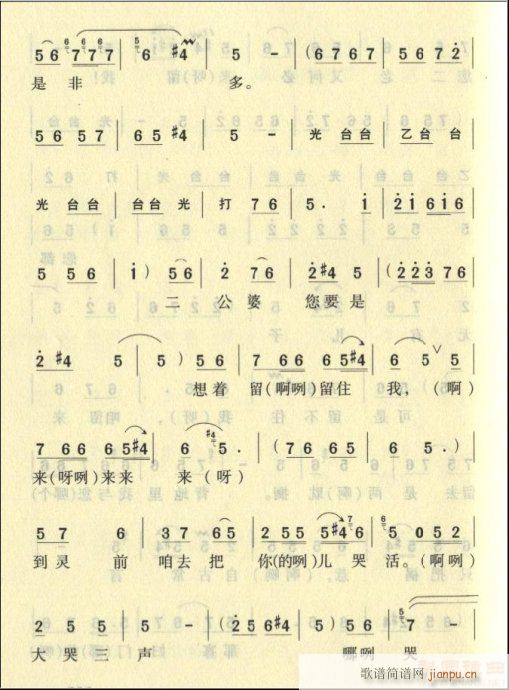 5 6 7 7 7 7 | 6 #4 | 5 - | (6 7 6 7 | 5 6 7 2
是 非 多。
5 6 5 7 | 6 5 #4 | 5 - | 光 台台 | 乙台台
光 台台 | 台台 光 | 打 7 6 | 5 · i | 2 1 6 1 6
5 5 6 | i ) 5 6 | 2 7 6 | 2 #4 5 | (2 2 3 7 6
二 公 婆 您 要 是
2 #4 5 | 5 ) 5 6 | 7 6 6 6 5 #4 | 6 5 ∨ 5
想着 留(啊咧)留住 我, (啊)
7 6 6 6 5 #4 | 6 5· | (7 6 6 5 | 6 5·
来(呀咧)来来 来(呀)
5 7 6 | 3 7 6 5 | 2 5 5 5 #4 | 5 0 5 2
到灵 前 咱去把 你(的咧)儿 哭 活。(啊咧)
2 5 5 | 5 - | (2 5 6 #4 | 5 ) 5 6 | 7 -
大哭三 声 哪咧 哭
歌谱简谱网
jianpu.cn